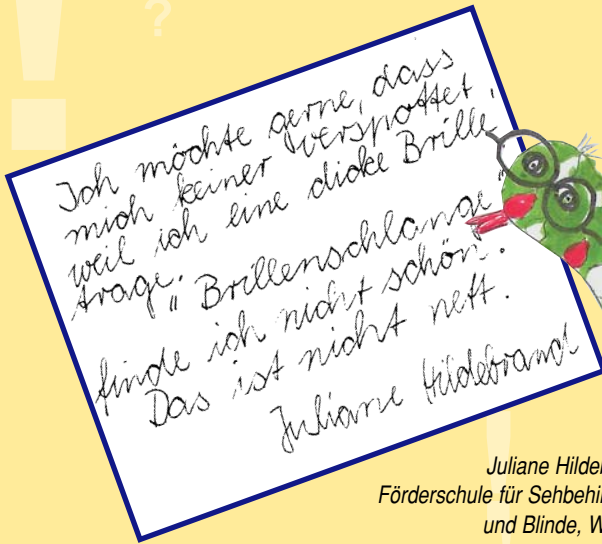 ?
!
Ich möchte gerne, dass
mich keiner verspottet,
weil ich eine dicke Brille
trage.
"Brillenschlange"
finde ich nicht schön.
Das ist nicht nett.
Juliane Hildebrand
Juliane Hilde
Förderschule für Sehbehi
und Blinde, W